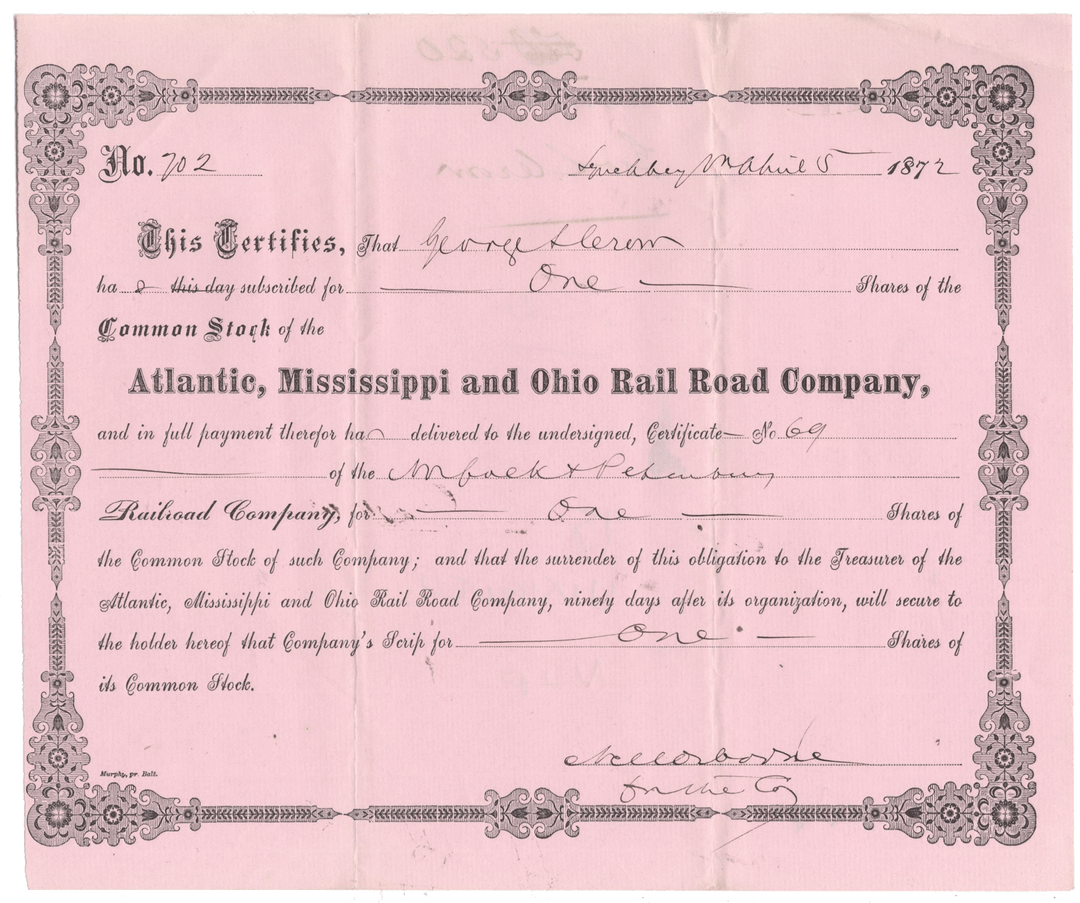 No. 702 Lynchburg Va April 5 1872
This Certifies, That George A Crow
ha s this day subscribed for One Shares of the
Common Stock of the
Atlantic, Mississippi and Ohio Rail Road Company,
and in full payment therefor has delivered to the undersigned, Certificate No 69
of the Norfolk & Petersburg
Railroad Company, for One Shares of
the Common Stock of such Company; and that the surrender of this obligation to the Treasurer of the
Atlantic, Mississippi and Ohio Rail Road Company, ninety days after its organization, will secure to
the holder hereof that Company's Scrip for One Shares of
its Common Stock.
Osborne
Murphy, pr. Balt.
for the Co